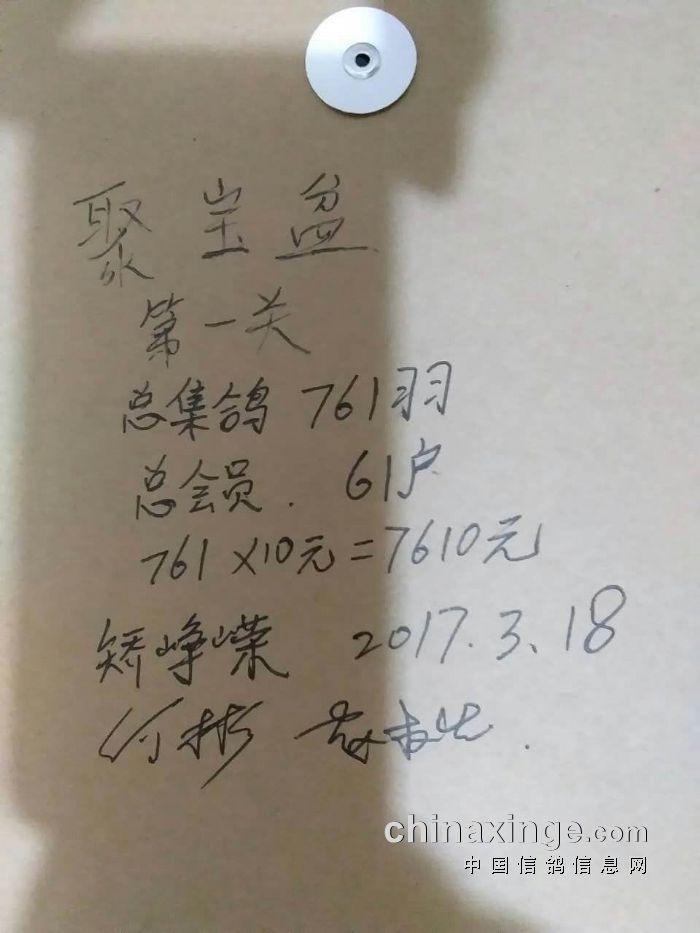 聚宝盆
第一关
总集鸽 761羽
总会员. 61户
761×10元=7610元
矫峥嵘 2017.3.18
何彬
chinaxinge.com
中国信鸽信息网